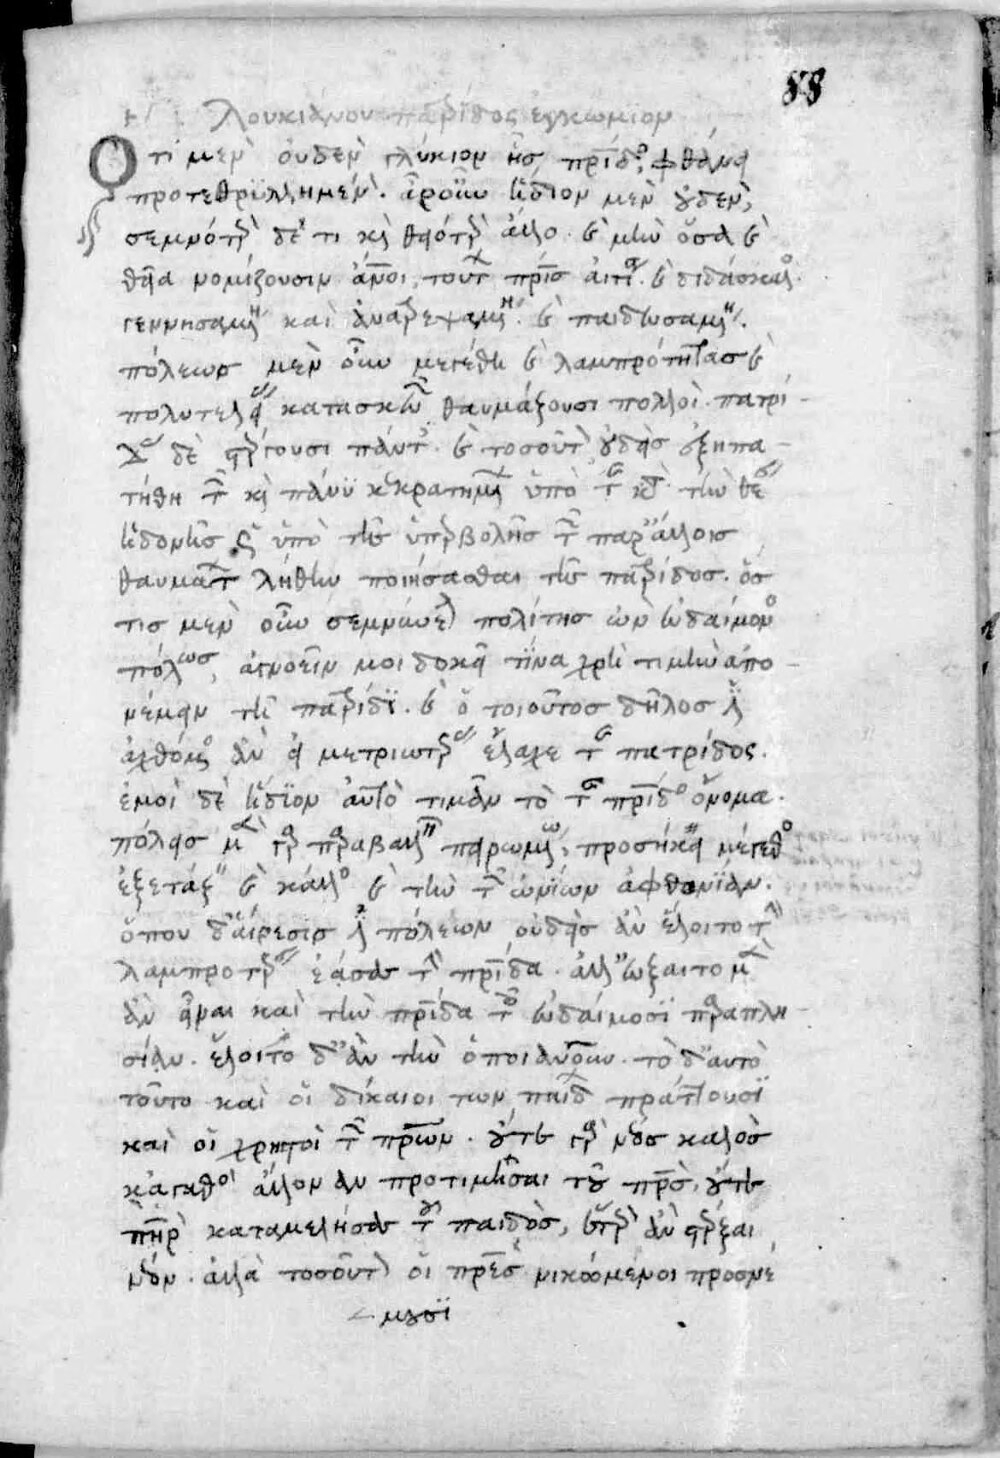 88
Λουκιάνου πατρίδος ἐγκώμιον
Ὅτι μὲν οὐδὲν γλύκιον ἧς πατρίδος, φθάνει
προτεθρϋλλημένον. ἆρ οὖν ἥδιον μὲν οὐδὲν,
σεμνότερον δέ τι καὶ θειότερον ἄλλο. καὶ μὴν ὅσα καὶ
θεῖα νομίζουσιν ἄνοι, τούτων πρὶς αἰτία καὶ διδάσκαλος.
γεννησαμένη καὶ ἀναθρεψαμένη καὶ παιδευσαμένη.
πόλεων μὲν οὖν μεγέθη καὶ λαμπρότητας καὶ
πολυτελείας κατασκευῶν θαυμάζουσι πολλοί. πατρί
δας δὲ στέργουσι πάντες. καὶ τοσοῦτον οὐδεὶς ἐξηπα
τήθη τῶν καὶ πάνυ κεκρατημένων ὑπὸ τῆς κατὰ τὴν θέαν
ἡδονῆς ὡς ὑπὸ τῆς ὑπερβολῆς τῶν παρ' ἄλλοις
θαυμάτων λήθην ποιήσασθαι τῆς πατρίδος. ὅσ
τις μὲν οὖν σεμνύνεται πολίτης ὢν εὐδαίμονος
πόλεως, ἀγνοεῖν μοι δοκεῖ τίνα χρὴ τιμὴν ἀπο
νέμειν τῇ πατρίδϊ. καὶ ὁ τοιοῦτος δῆλός ἐστιν
ἀχθόμενος ἂν εἰ μετριωτέρας ἔλαχε τῆς πατρίδος.
ἐμοὶ δὲ ἥδϊον αὐτὸ τιμᾶν τὸ τῆς πατρίδος ὄνομα.
πόλεις μὲν γὰρ παραβάλλειν πειρωμένω, προσήκει μέγεθος
ἐξετάζειν καὶ κάλλος καὶ τὴν τῶν ὠνίων ἀφθονίαν.
ὅπου δ' αἵρεσις ἐστὶ πόλεων οὐδεὶς ἂν ἕλοιτο τὴν
λαμπροτέραν ἐάσας τὴν πρίδα. ἀλλ' εὔξαιτο μὲν
ἂν εἶναι καὶ τὴν πρίδα τοῖς εὐδαίμοσϊ παραπλη
σίαν. ἕλοιτο δ' ἂν τὴν ὁποιανοῦν. τὸ δ' αὐτὸ
τοῦτο καὶ οἱ δίκαιοι των παίδων πράττουσϊ
καὶ οἱ χρηστοὶ τῶν πρων. οὔτε γὰρ νέος καλὸς
κἀγαθὸς ἄλλον ἂν προτιμήσαι τοῦ πρς, οὔτε
πὴρ καταμελήσας τοῦ παιδὸς, ἕτερον ἂν στέρξαι
νέον. ἀλλὰ τοσοῦτον οἱ πρες νικώμενοι προσνέ
μουσϊ